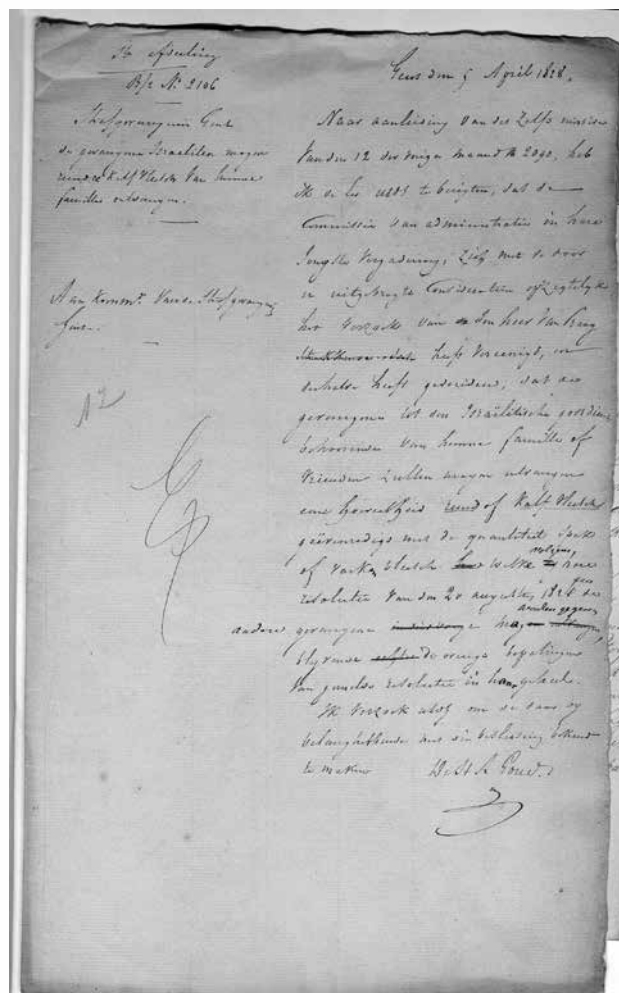 1e Afdeeling
B/c No 2106
Gend den 5 April 1828.
Strafgevangenis Gent
de gevangene Israëliten mogen
rund & Kalf Vleesch Van hunne
familie ontvangen.
Aan Kommt. Van de Strafgevangenis
Gend.
N2
Naar aanleiding van des Zelfs missive
Van den 12 der vorige maand No 2090, heb
ik de eer UEd te berigten, dat de
Commissie van administratie in hare
Jongste Vergadering, Zich met de door
U uitgebragte Consideratien opzigtelijk
het Verzoek van den heer Van Praag
heeft Vereenigd, en
heeft goedgevonden, dat de
gevangene tot den Israëlitische godsdienst
behoorende Van hunne familie of
Vrienden Zullen mogen ontvangen
eene hoeveelheid rund of Kalf Vleesch
geëvenredigd met de quantiteit
of Varken Vleesch welke volgens hare
resolutie Van den 20 augustus 1825 de
andere gevangene mogen
blijvende de overige bepalingen
Van gemelde resolutie in haar geheel.
Ik Verzoek UEd om de daar bij
belanghebbende met die beslissing bekend
te maken
De St. A. Gouv.